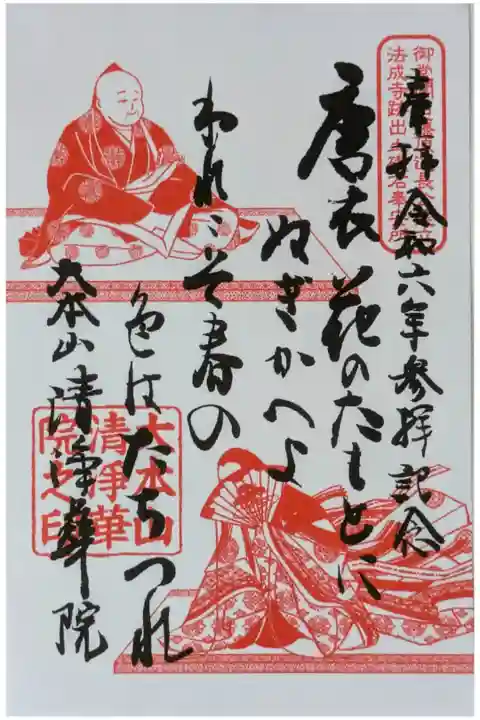 奉拝 令和六年参拝記念
御堂関白藤原道長
法成寺跡出土礎石奉安所
唐衣花のたもとに
ぬぎかへよ
われこそ春の
色はたちつれ
大本山清浄華院
大本山
清浄華
院之印